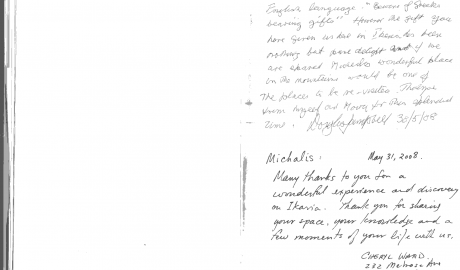 English language. "Beware of Greeks
bearing gifts" However the gift you
have given us on Ikaria has been
nothing but pure delight and if we
are spared Michalis wonderful place
in the mountains would be one of
the places to be re-visited. Thank you
from myself and for this splendid
time. Douglas Campbell 30/5/08
Michalis, May 31, 2008.
Many thanks to you for a
wonderful experience and discovery
on Ikaria. Thank you for sharing
your space, your knowledge and a
few moments of your life with us.
CHERYL WARD
232 Melrose Ave